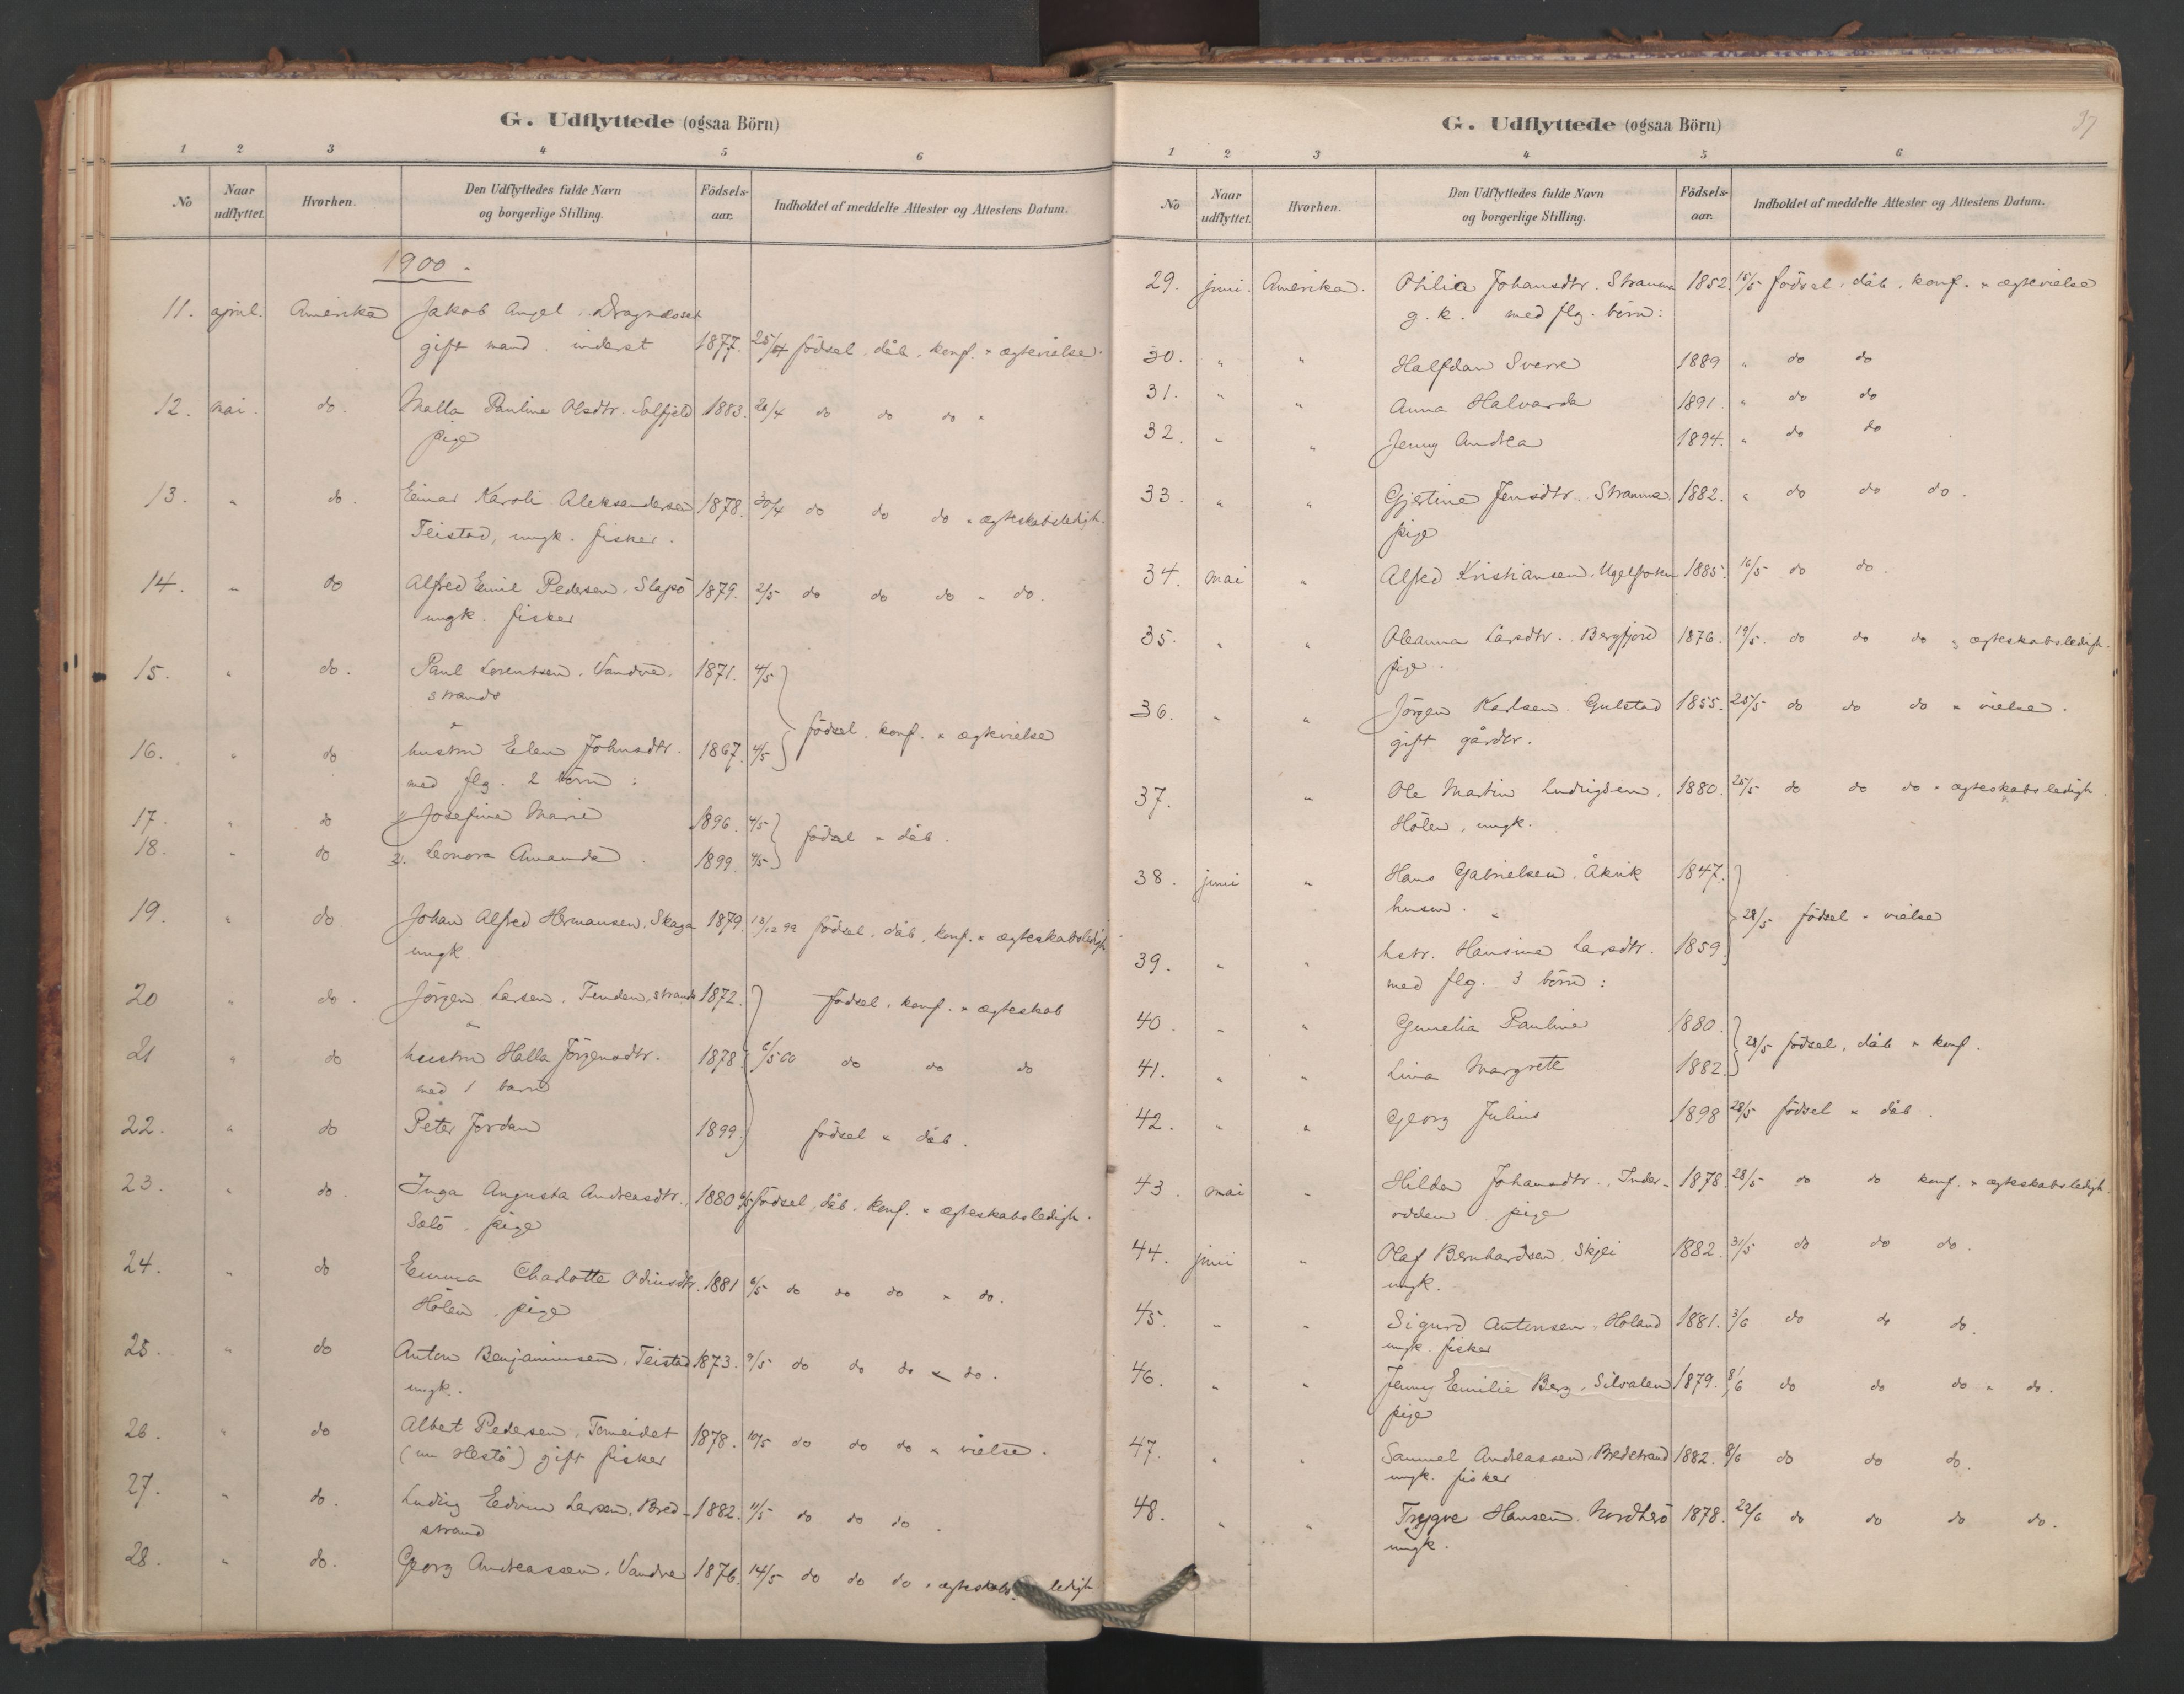 G. Udflyttede (ogsaa Börn)
1 2 3 4 5 6
No Naar udflyttet. Hvorhen. Den Udflyttedes fulde Navn og borgerlige Stilling. Födsels-aar. Indholdet af meddelte Attester og Attestens Datum.
1900.
11. april. Amerika Jakob Angel, Dragnæsset
gift mand. inderst 1877. 25/4 födsel, dåb, konf. " ægtevielse.
12. mai. do. Malla Pauline Olsdtr. Solfjeld 1883. 28/4 do do do "
pige
13. " do. Einar Karoli Aleksandersen 1878. 30/4 do do do " ægteskabsledigh.
Teistad, ungk. fisker.
14. " do Alfred Emil Pedersen, Slapö 1879. 2/5 do do do " do.
ungk. fisker
15. " do. Paul Lorentsen, Vandve. 1871. 4/5
strands
födsel, konf. " ægtevielse
16. " do hustru Elen Johnsdtr. 1867. 4/5
med flg. 2 börn:
17. " do 1) Josefine Marie 1896. 4/5
födsel " dåb.
18. " do 2. Leonora Amanda 1899. 4/5
19. " do. Johan Alfred Hermansen, Skaga 1879. 13/12 99 födsel, dåb, konf. " ægteskabsledigh.
ungk.
20 " do. Jörgen Larsen, Tenden, strands 1872. födsel, konf. " ægteskab
21 " do hustru Halla Jörgensdtr. 1878. 6/5 00 do do do
med 1 barn
22. " do Peter Jordan 1899. födsel " dåb.
23. " do. Inga Augusta Andreasdtr. 1880 6/5 födsel, dåb, konf. " ægteskabsledigh.
Salö, pige
24. " do Emma Charlotte Odinsdtr. 1881 6/5 do do do " do.
Hölen, pige
25. " do Anton Benjaminsen, Teistad 1873. 9/5 do do do " do.
ungk.
26. " do Albert Pedersen, Tomeidet 1878. 10/5 do do do " vielse.
(nu Hestö) gift fisker
27. " do. Ludvig Edvin Larsen, Bred- 1882. 11/5 do do do.
strand
28. " do. Georg Andreassen, Vandve 1876. 14/5 do do do " ægteskabsledigh.
37
G. Udflyttede (ogsaa Börn)
1 2 3 4 5 6
No Naar udflyttet. Hvorhen. Den Udflyttedes fulde Navn og borgerlige Stilling. Födsels-aar. Indholdet af meddelte Attester og Attestens Datum.
29. juni. Amerika. Otilia Johansdtr. Straum 1852. 15/5 födsel, dåb, konf. " ægtevielse
g. k. med flg. börn:
30. " " Halfdan Sverre 1889 " do do
31. " " Anna Halvarda 1891. " do do
32. " " Jenny Andrea 1894. " do do
33. " " Gjertine Jensdtr. Straumø. 1882. " do do do.
pige
34. mai " Alfred Kristiansen, 1885. 16/5 do do.
35. " " Oleanna Larsdtr. Bergfjord 1876. 19/5. do do do, ægteskabsledigh.
pige.
36. " " Jörgen Karlsen Gulstad 1855. 25/5 do do do " vielse.
gift gårdbr.
37. " Ole Martin Ludvigsen, 1880. 25/5 do do do " ægteskabsledigh.
Hölen, ungk.
38. juni " Hans Gabrielsen, Åkvik 1847.
husm. "
28/5 födsel " vielse
39. " " hstr. Hansine Larsdtr. 1859.
med flg. 3 börn:
40. " " Gunelia Pauline 1880.
28/5 födsel, dåb " konf.
41. " " Lina Margrete 1882.
42. " " Georg Julius 1898 28/5 födsel " dåb.
43. mai " Hilda Johansdtr., Inder- 1878. 28/5 do do konf. " ægteskabsledigh.
odden, pige
44. juni " Olaf Bernhardsen Skjei 1882. 31/5 do do do.
ungk.
45. " " Sigurd Antonsen, Holand 1881. 3/6 do do do.
ungk. fisker
46. " " Jenny Emilie Berg, Silvalen 1879. 8/6 do do do " do.
pige
47. " " Samuel Andreassen, Bredstrand 1882. 8/6 do do do.
ungk. fisker
48. " " Trygve Hansen, Nordherö 1878. 22/6 do do do do.
ungk.